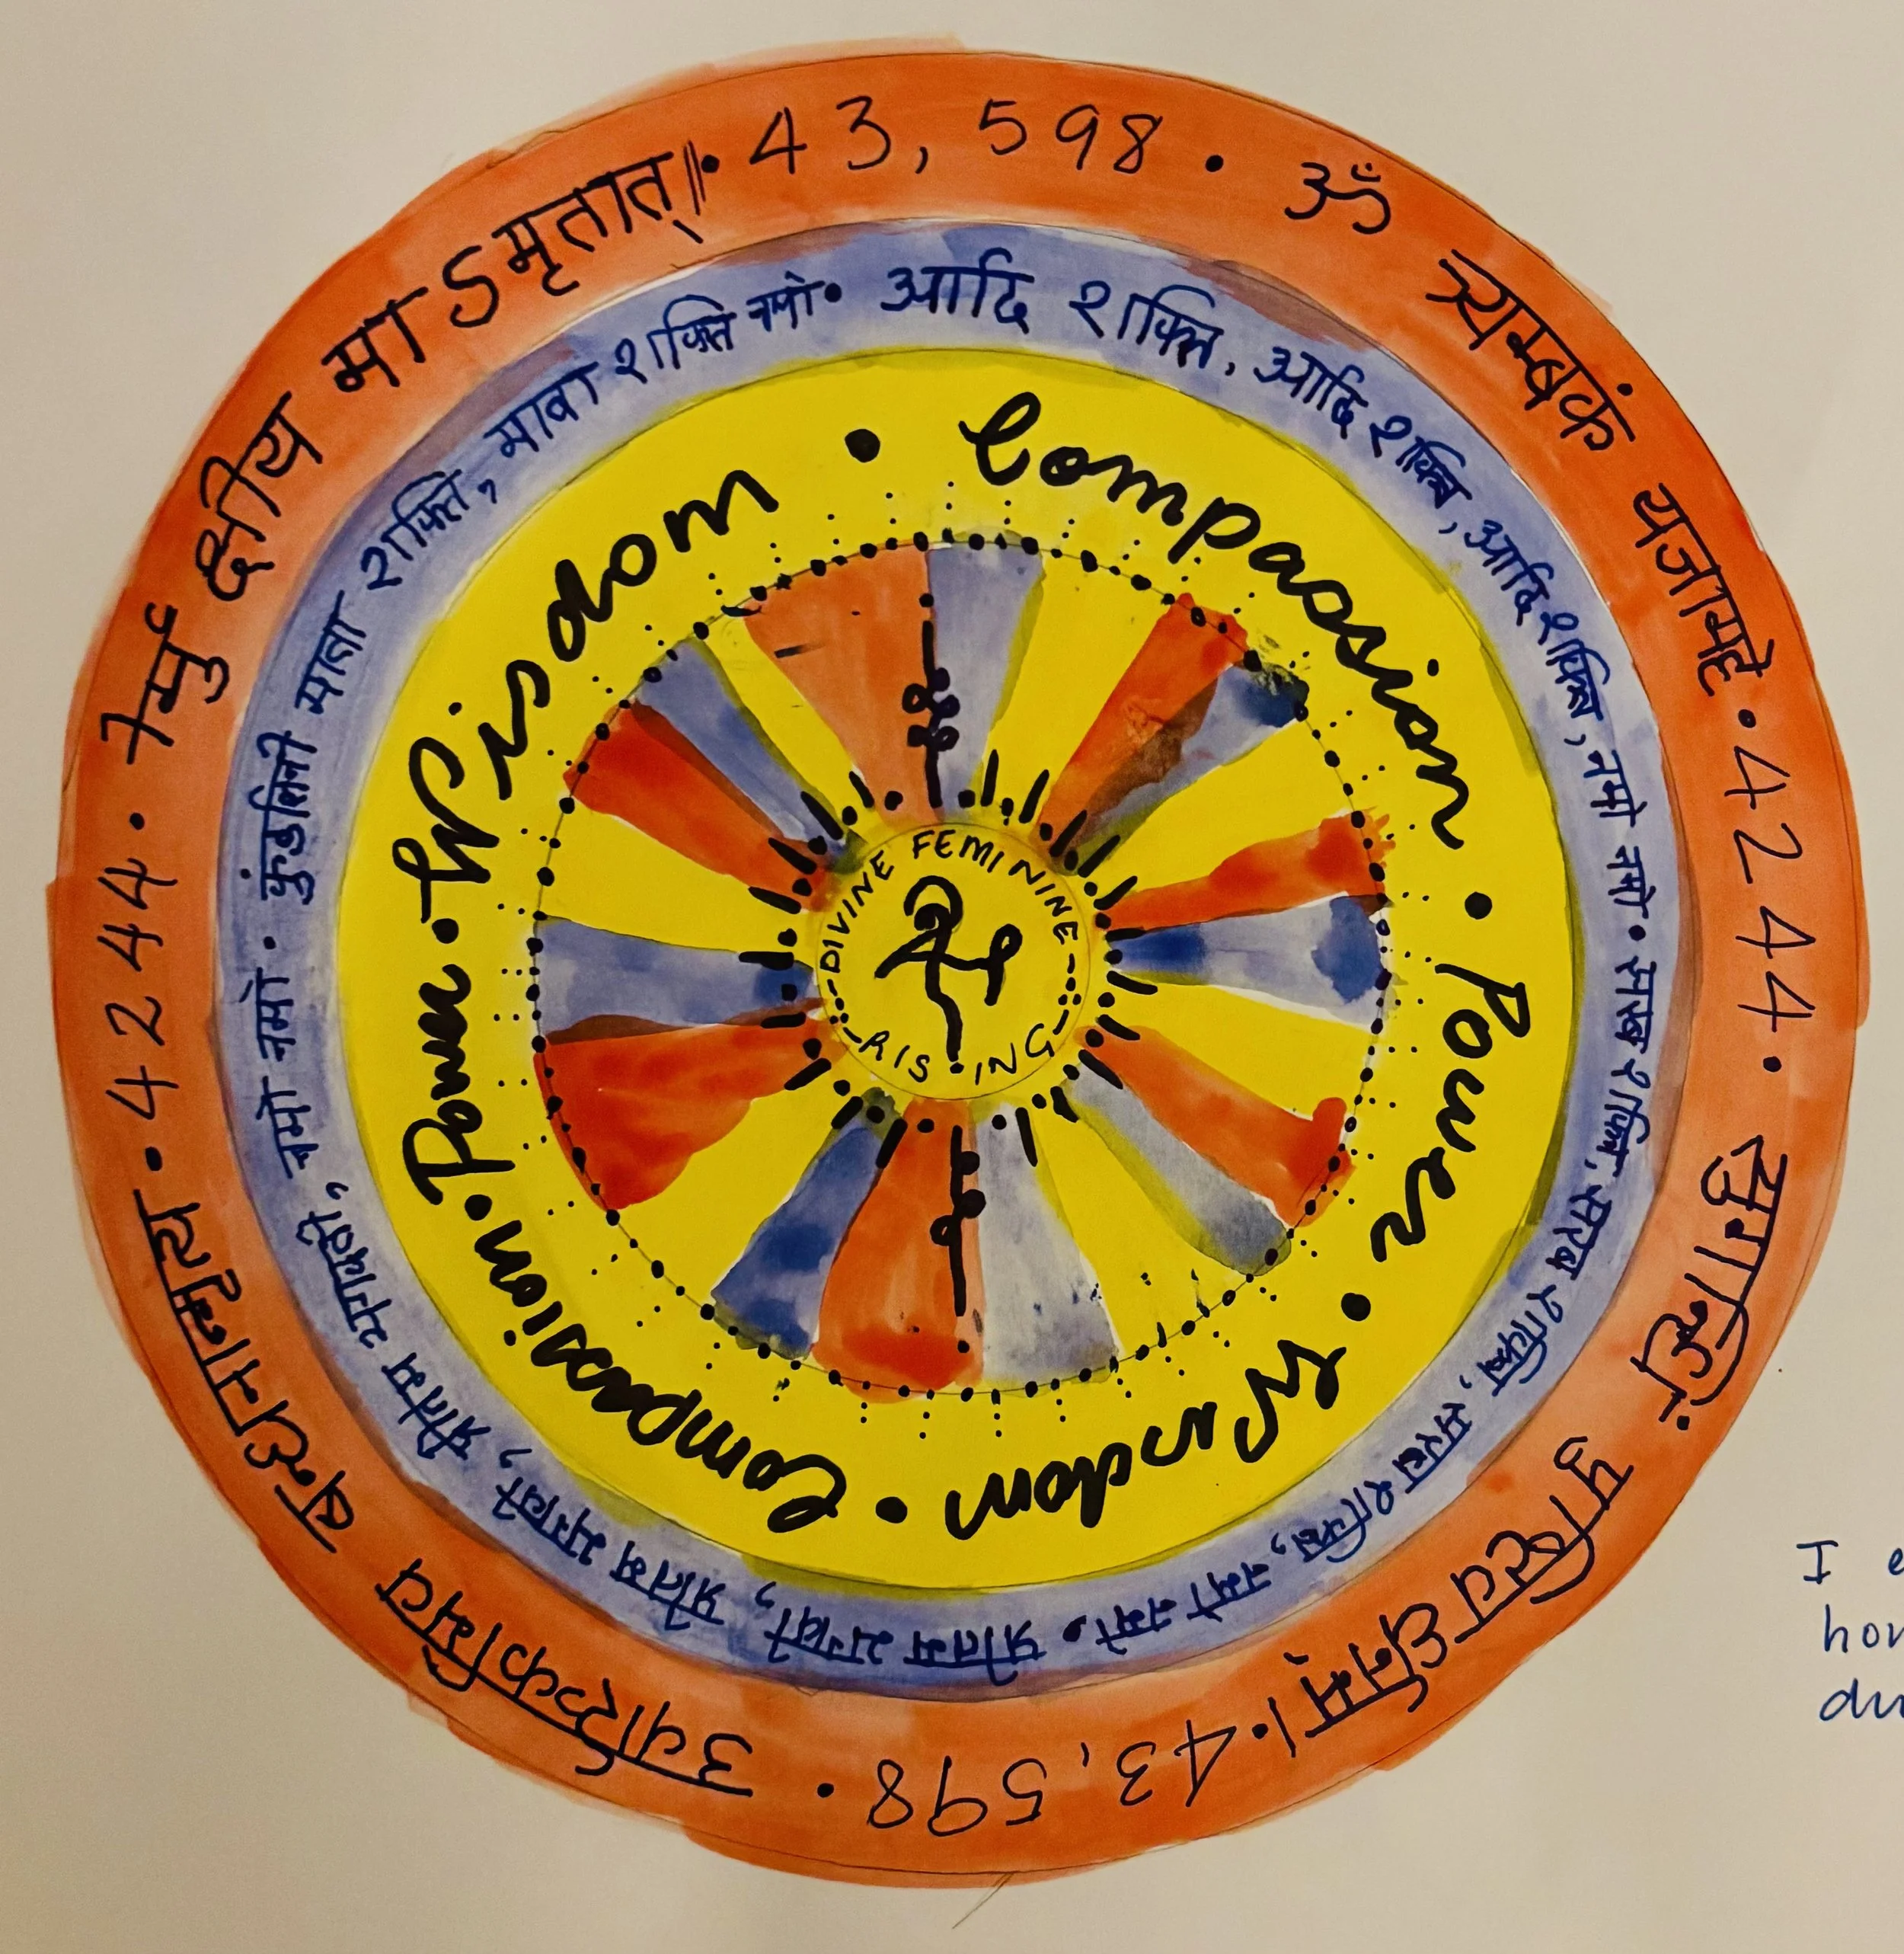 43,598 • ॐ त्र्यम्बकं यजामहे • 42 44 • सुगन्धिं पुष्टिवर्धनम् । • 43,598 • उर्वारुकमिव बन्धनान्मृत्य • 4244 • र्मु क्षीय मा ऽमृतात् ॥ •
आदि शक्ति, आदि शक्ति, आदि शक्ति, नमो नमो • सरब शक्ति, सरब शक्ति, सरब शक्ति, नमो नमो • प्रीतम भगवती, प्रीतम भगवती, प्रीतम भगवती, नमो नमो • कुंडलिनी माता शक्ति, माता शक्ति नमो •
Compassion • Power • Wisdom • Compassion • Power • Wisdom •
DIVINE FEMININE
RISING
I